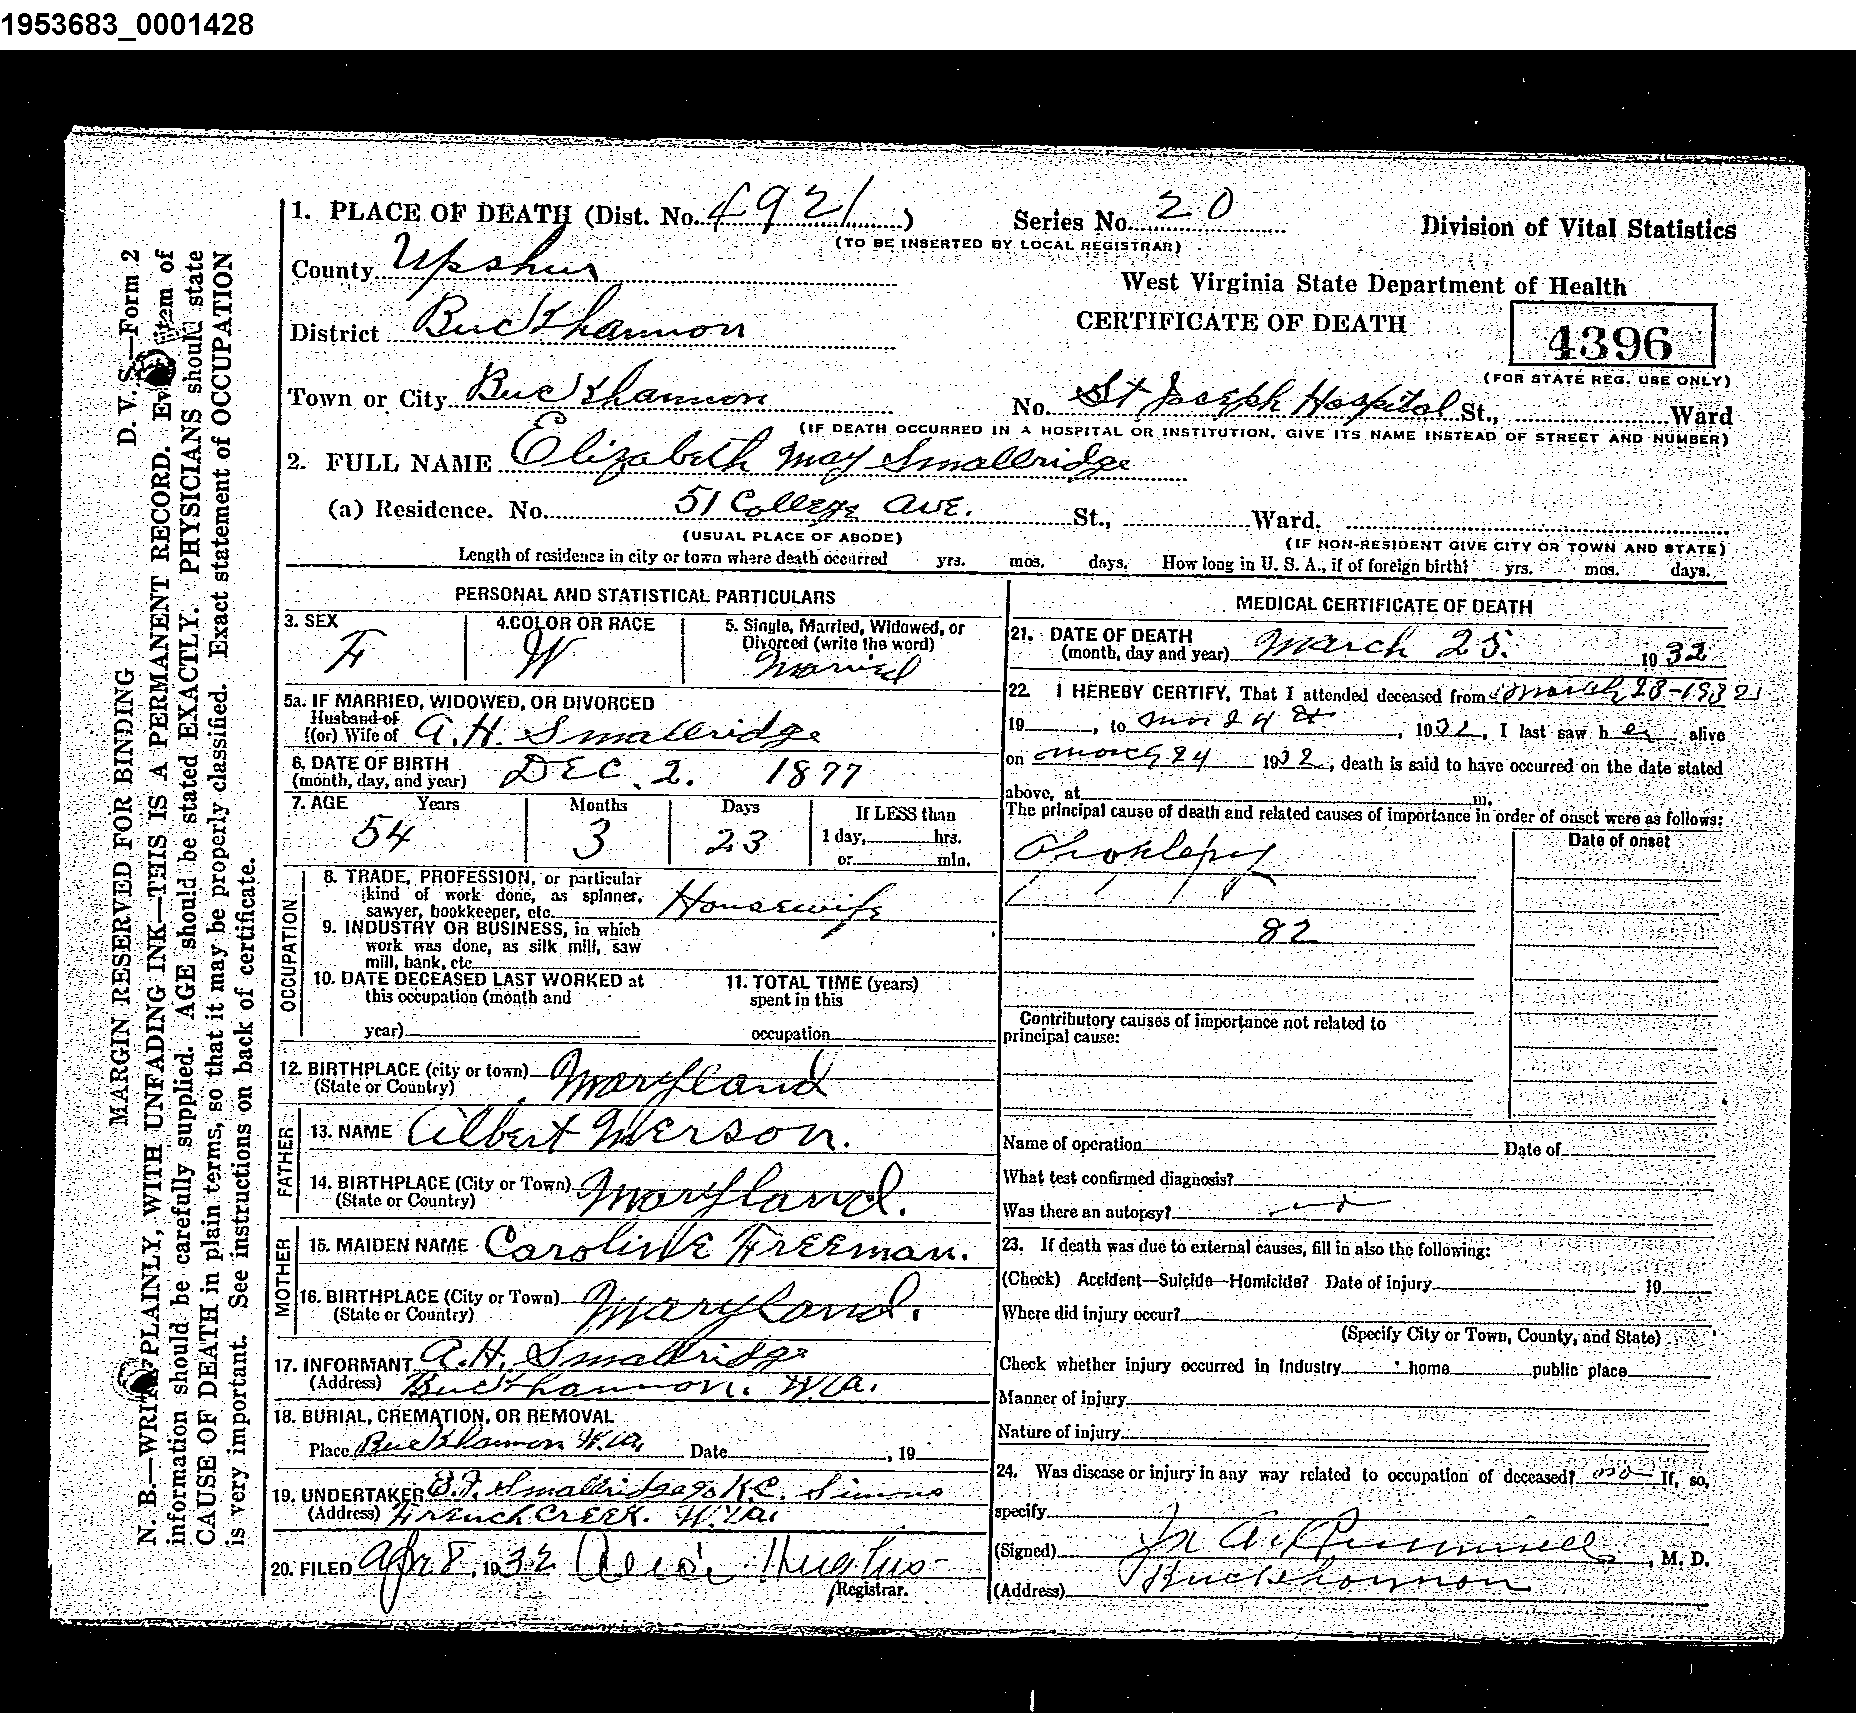 1953683_0001428
MARGIN RESERVED FOR BINDING D. V. S.—Form 2
N. B.—WRITE PLAINLY, WITH UNFADING INK—THIS IS A PERMANENT RECORD. Every item of
information should be carefully supplied. AGE should be stated EXACTLY. PHYSICIANS should state
CAUSE OF DEATH in plain terms, so that it may be properly classified. Exact statement of OCCUPATION
is very important. See instructions on back of certificate.
1. PLACE OF DEATH (Dist. No. 4921) Series No. 20 Division of Vital Statistics
(TO BE INSERTED BY LOCAL REGISTRAR)
County Upshur
West Virginia State Department of Health
District Buckhannon
CERTIFICATE OF DEATH 4396
(FOR STATE REG. USE ONLY)
Town or City Buckhannon No. St Joseph Hospital St., Ward
(IF DEATH OCCURRED IN A HOSPITAL OR INSTITUTION, GIVE ITS NAME INSTEAD OF STREET AND NUMBER)
2. FULL NAME Elizabeth May Smallridge
(a) Residence. No. 51 College Ave. St., Ward.
(USUAL PLACE OF ABODE) (IF NON-RESIDENT GIVE CITY OR TOWN AND STATE)
Length of residence in city or town where death occurred yrs. mos. days. How long in U. S. A., if of foreign birth? yrs. mos. days.
PERSONAL AND STATISTICAL PARTICULARS
3. SEX 4. COLOR OR RACE 5. Single, Married, Widowed, or
Divorced (write the word)
F W Married
5a. IF MARRIED, WIDOWED, OR DIVORCED
Husband of
(or) Wife of A. H. Smallridge
6. DATE OF BIRTH
(month, day, and year) DEC. 2. 1877
7. AGE Years Months Days If LESS than
54 3 23 1 day, hrs.
or min.
OCCUPATION
8. TRADE, PROFESSION, or particular
kind of work done, as spinner,
sawyer, bookkeeper, etc. Housewife
9. INDUSTRY OR BUSINESS, in which
work was done, as silk mill, saw
mill, bank, etc.
10. DATE DECEASED LAST WORKED at
this occupation (month and
year)
11. TOTAL TIME (years)
spent in this
occupation
12. BIRTHPLACE (city or town) Maryland
(State or Country)
FATHER
13. NAME Albert Merson.
14. BIRTHPLACE (City or Town) Maryland.
(State or Country)
MOTHER
15. MAIDEN NAME Caroline Freeman.
16. BIRTHPLACE (City or Town) Maryland.
(State or Country)
17. INFORMANT A. H. Smallridge
(Address) Buckhannon. W.Va.
18. BURIAL, CREMATION, OR REMOVAL
Place Buckhannon W.Va. Date , 19
19. UNDERTAKER Smallridge K.C. Simms
(Address) French Creek. W.Va.
20. FILED Apr 8, 1932 Hughes
Registrar.
MEDICAL CERTIFICATE OF DEATH
21. DATE OF DEATH
(month, day and year) March 25. 1932
22. I HEREBY CERTIFY, That I attended deceased from March 23-1932
19 , to 24 , 1932, I last saw her alive
on March 24 1932, death is said to have occurred on the date stated
above, at m.
The principal cause of death and related causes of importance in order of onset were as follows:
Date of onset
82
Contributory causes of importance not related to
principal cause:
Name of operation Date of
What test confirmed diagnosis?
Was there an autopsy? no
23. If death was due to external causes, fill in also the following:
(Check) Accident—Suicide—Homicide? Date of injury 19
Where did injury occur?
(Specify City or Town, County, and State)
Check whether injury occurred in Industry home public place
Manner of injury
Nature of injury
24. Was disease or injury in any way related to occupation of deceased? no If, so,
specify
(Signed) , M. D.
(Address) Buckhannon